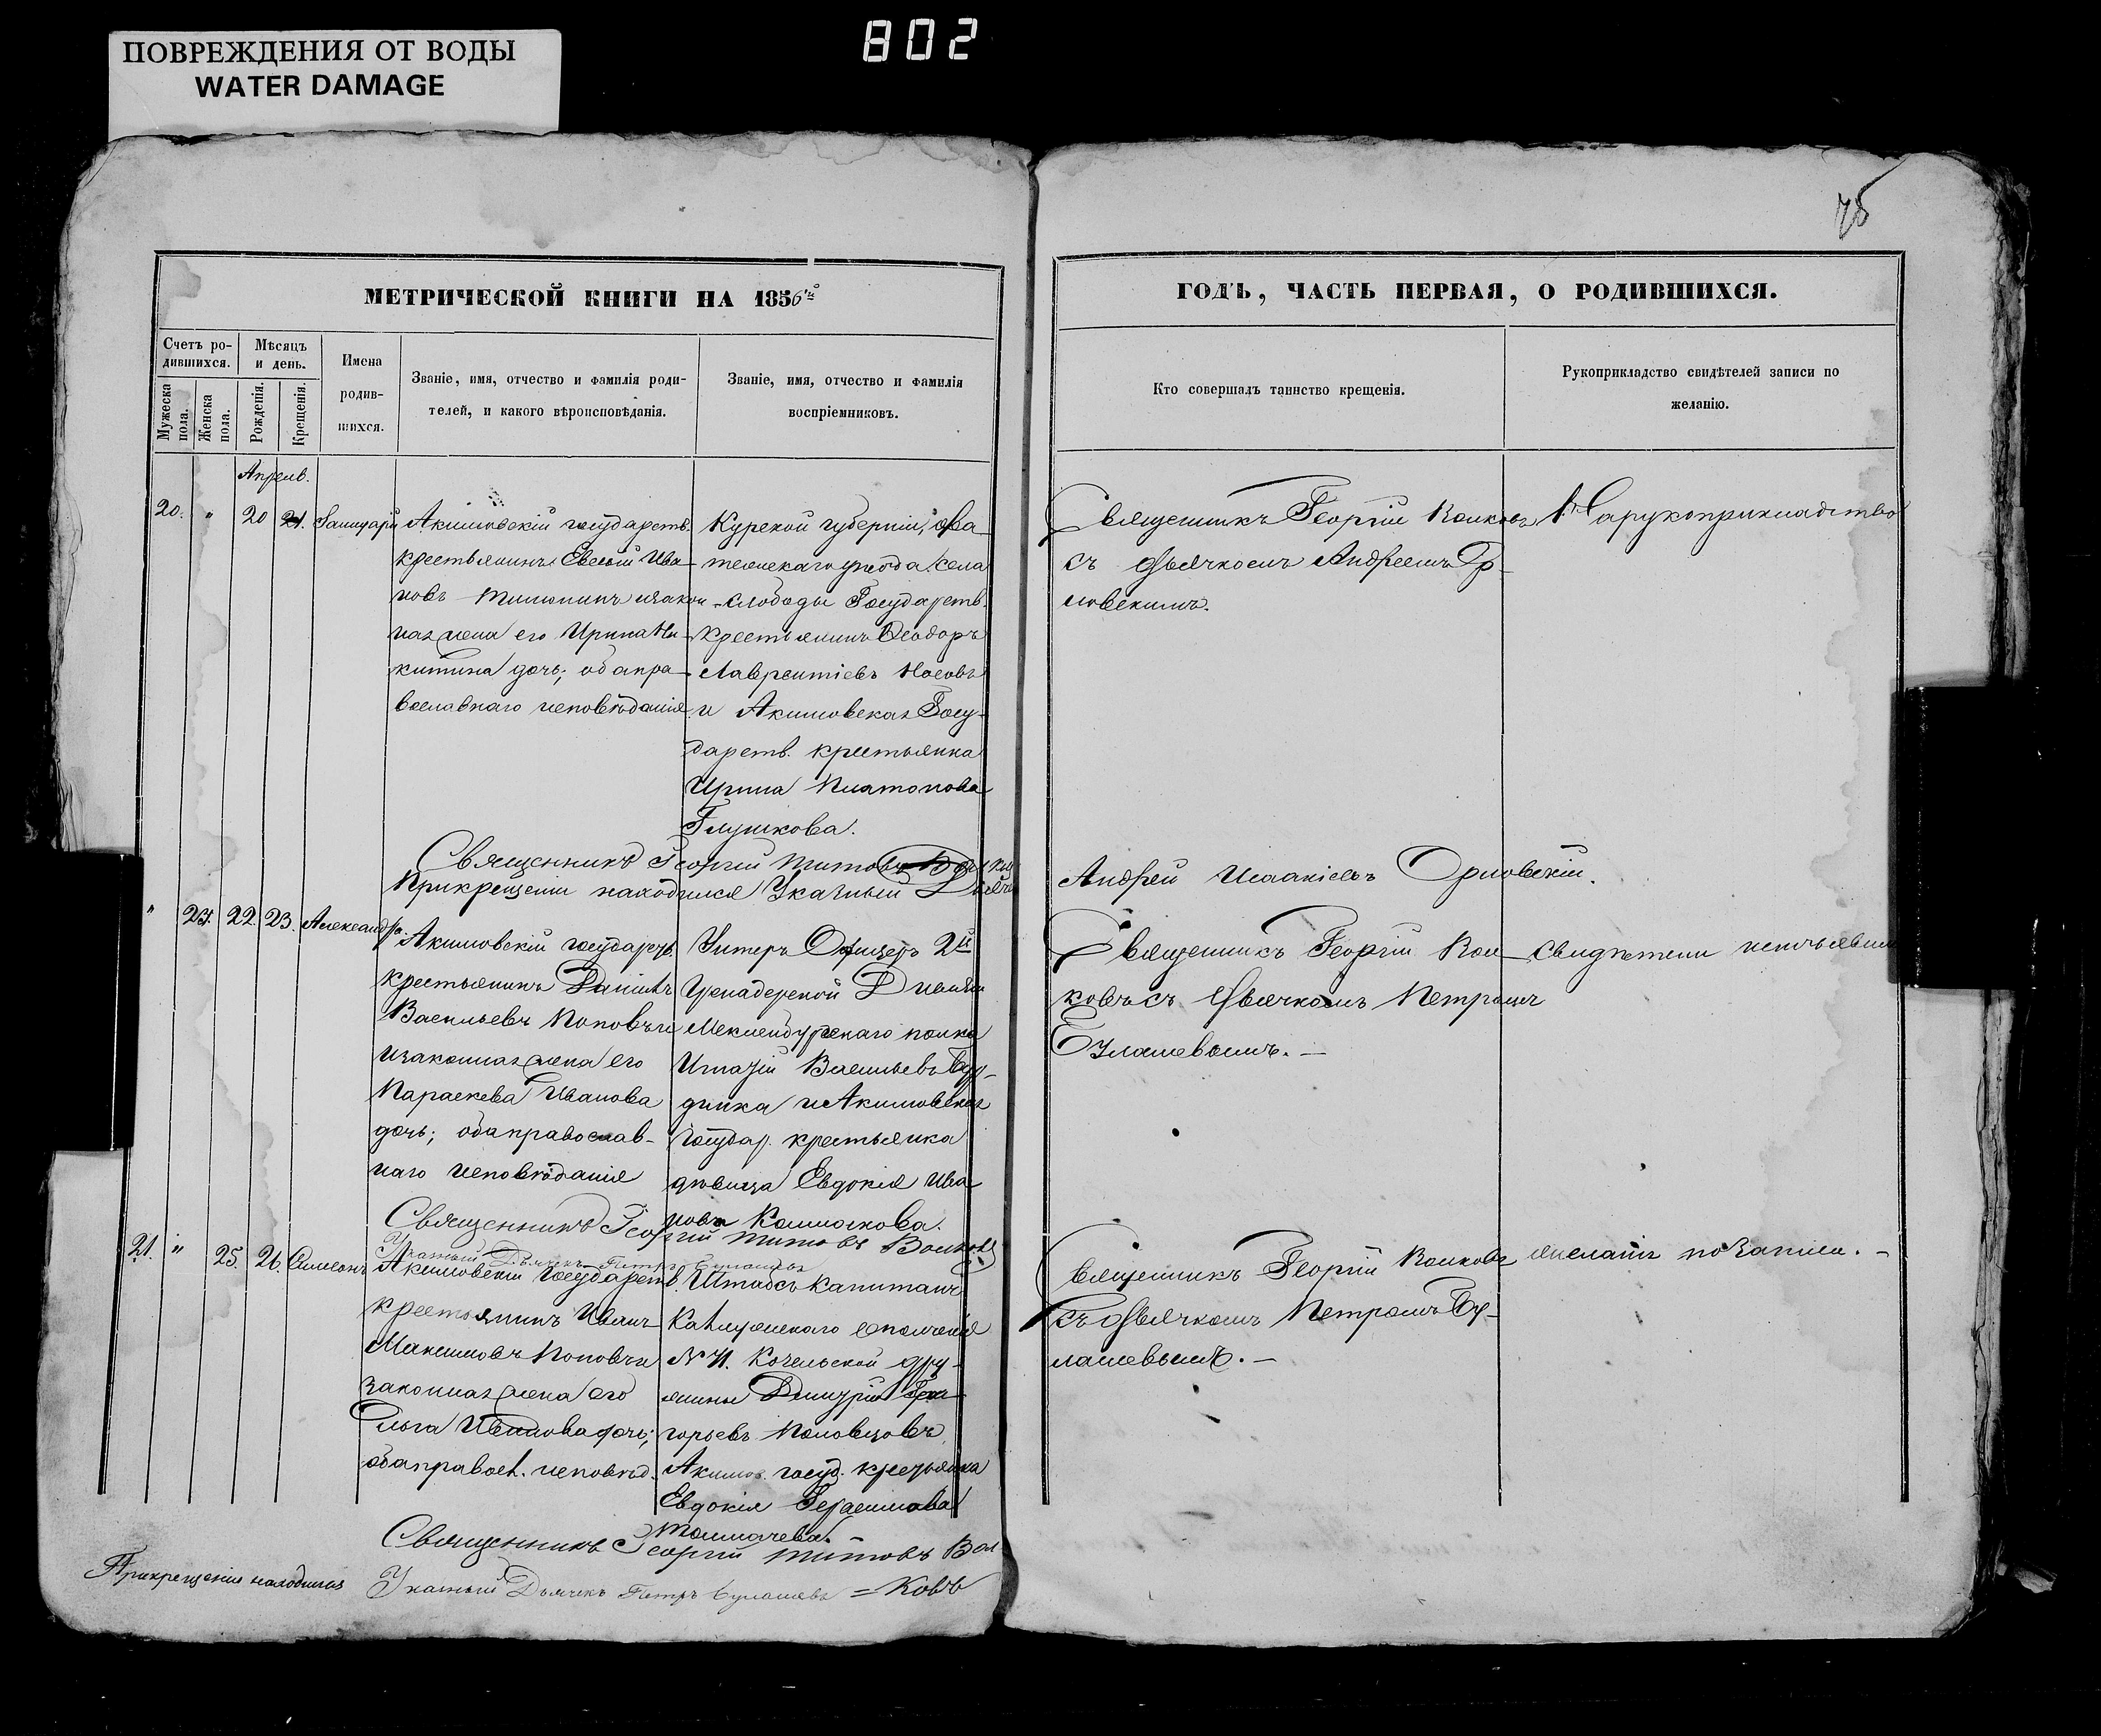 ПОВРЕЖДЕНИЯ ОТ ВОДЫ
WATER DAMAGE
802
75
МЕТРИЧЕСКОЙ КНИГИ НА 1856
ГОДЪ, ЧАСТЬ ПЕРВАЯ, О РОДИВШИХСЯ.
Счетъ ро-
дившихся.
Мужеска
пола.
Женска
пола.
Мѣсяцъ
и день.
Рожденія.
Крещенія.
Имена
родив-
шихся.
Званіе, имя, отчество и фамилія роди-
телей, и какого вѣроисповѣданія.
Званіе, имя, отчество и фамилія
воспріемниковъ.
Кто совершалъ таинство крещенія.
Рукоприкладство свидѣтелей записи по
желанію.
Апрель.
20. " 20 21.
Акимовскій государств.
крестьянинъ Евсѣй Ива-
новъ изакон-
ная жена его Ирина Ни-
китина дочь; оба пра-
вославнаго исповѣданія
Курской губерніи, Фа-
тежскаго уѣзда села
слободы Государств.
крестьянинъ Ѳеодоръ
Лаврентіевъ Носовъ
и Акимовская Госу-
дарств. крестьянка
Ирина Платонова
Глушкова.
Священникъ Георгій Волковъ
съ дьячкомъ Андреемъ Ор-
ловскимъ.
рукоприкладство
Священникъ Георгій Титовъ
При крещеніи находился Указный Дьячекъ
Андрей Исаакіевъ Орловскій.
" 21. 22. 23. Александра.
Акимовскій государств.
крестьянинъ Даніилъ
Васильевъ Поповъ и
изаконная жена его
Параскева Иванова
дочь; оба православ-
наго исповѣданія
Унтеръ Офицеръ 2й
Гренадерской Дивизіи
Мекленбургскаго полка
Игнатій Васильевъ
и Акимовская
государ. крестьянка
дѣвица Евдокія Ива-
нова Колпакова.
Священникъ Георгій Вол-
ковъ съ дьячкомъ Петромъ
Булашевымъ. —
свидѣтели неизъявили
Священникъ Георгій Титовъ Волковъ
Указный Дьячекъ Петръ Булашевъ
21. " 25. 26. Симеонъ
Акимовскій Государств.
крестьянинъ Иванъ
Максимовъ Поповъ и
законная жена его
Ольга Иванова дочь;
оба правосл. исповѣд.
Штабсъ Капитанъ
Калужскаго ополченія
№ 71. Козельской дру-
жины Димитрій Гри-
горьевъ Половцовъ,
Акимов. госуд. крестьянка
Евдокія Герасимова
Толмачева.
Священникъ Георгій Волковъ
съ дьячкомъ Петромъ Бу-
лашевымъ. —
желанія по записи. —
Священникъ Георгій Титовъ Вол
При крещеніи находился Указный Дьячекъ Петръ Булашевъ = ковъ